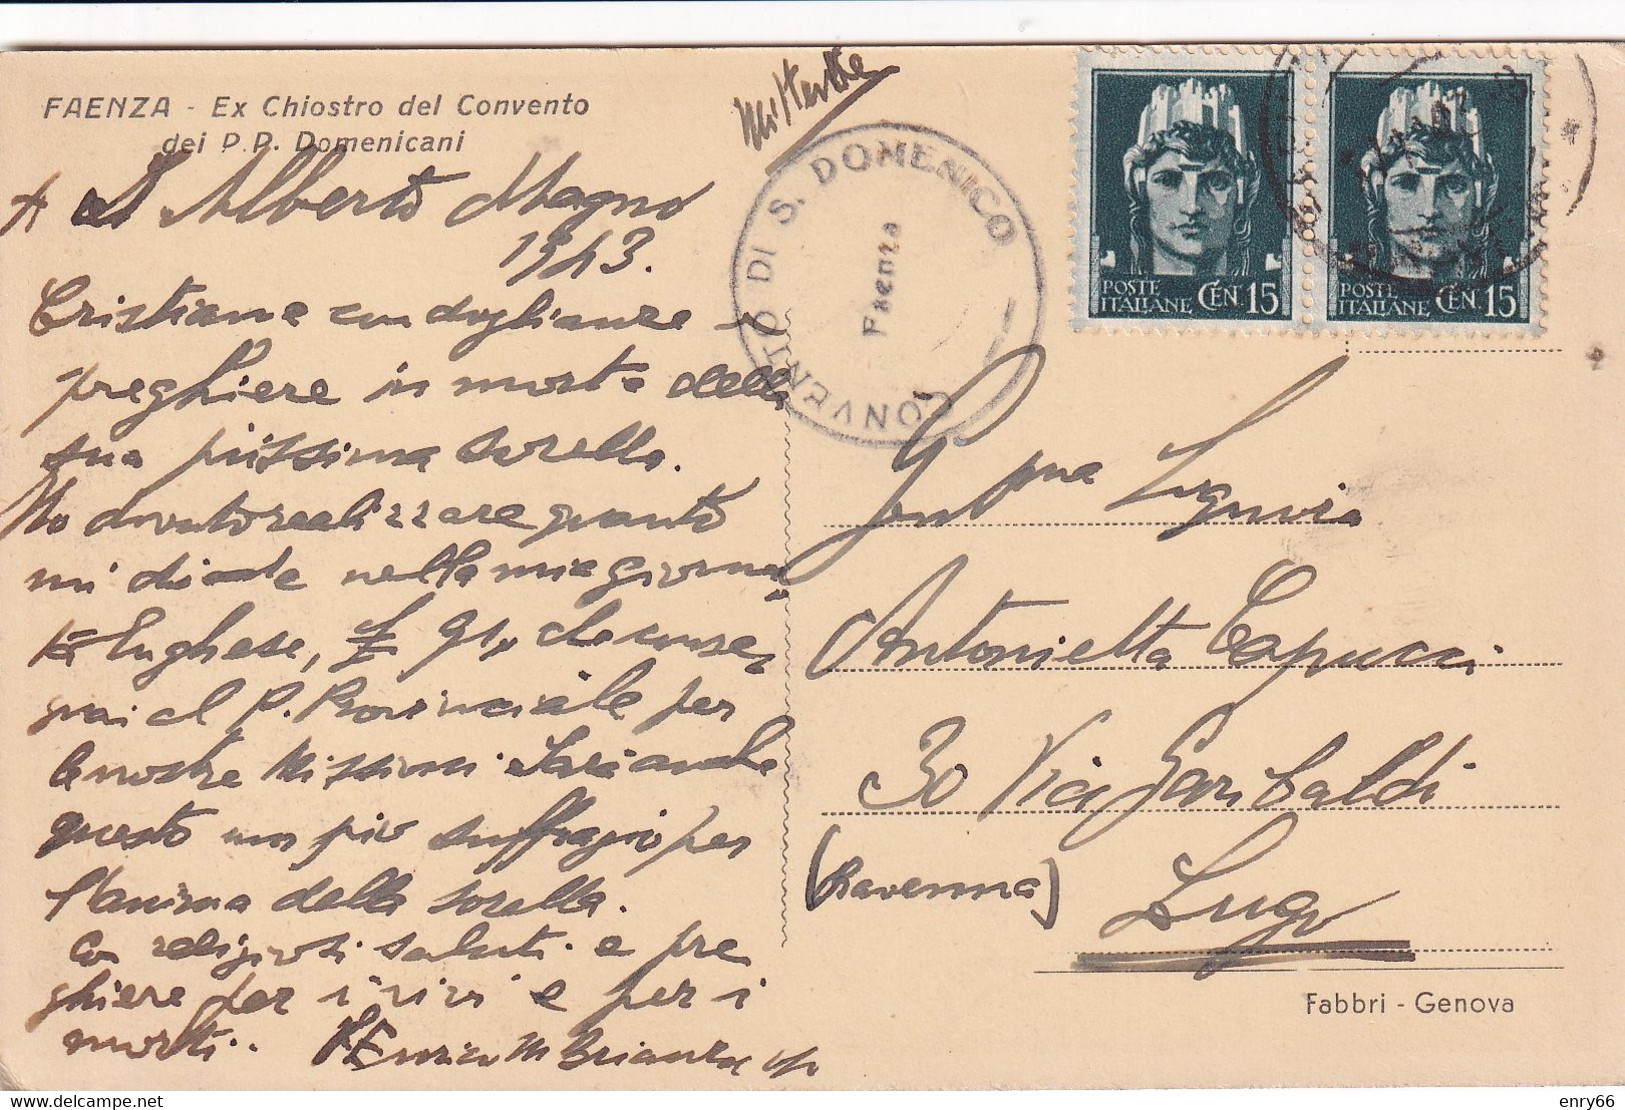 FAENZA - Ex Chiostro del Convento
dei P.P. Domenicani
Mittente
CONVENTO DI S. DOMENICO
Faenza
POSTE ITALIANE CEN. 15
POSTE ITALIANE CEN. 15
+ S Alberto Magno
1943.
Cristiane condoglianze +
preghiere in morte della
sua piissima sorella.
Ho dovuto realizzare quanto
mi diede nella mia giorna-
ta Lughese, £ 91, che conse-
gnai al P. Provinciale per
le nostre Missioni. Sarà anche
questo un pio suffragio per
l'anima della sorella.
Con religiosi saluti e pre
ghiere per i vivi e per i
morti. P. Enrico M Brianza op
Gent.ma Signora
Antonietta Capucci
30 Via Garibaldi
(Ravenna)
Lugo
Fabbri - Genova
delcampe.net
enry66